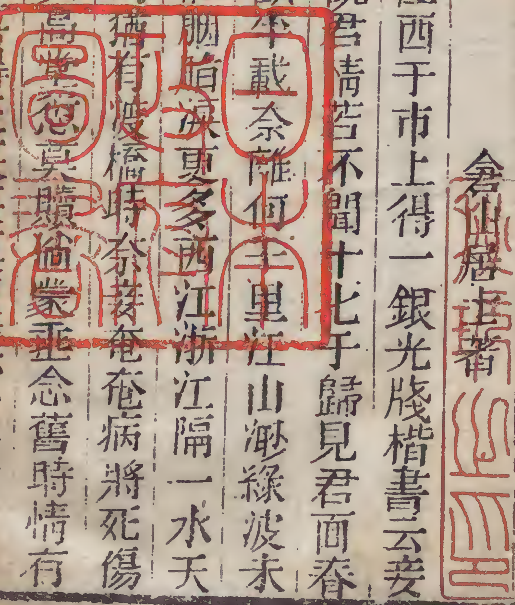 倉山居士著
西于市上得一銀光牋楷書云妾
君情若不聞十七于歸見君面春
載奈離何千里江山渺綠波未
胭脂淚更多西江浙江隔一水天
猶有渡橋時奈妾奄奄病將死傷
莫贖倘蒙垂念舊時情有